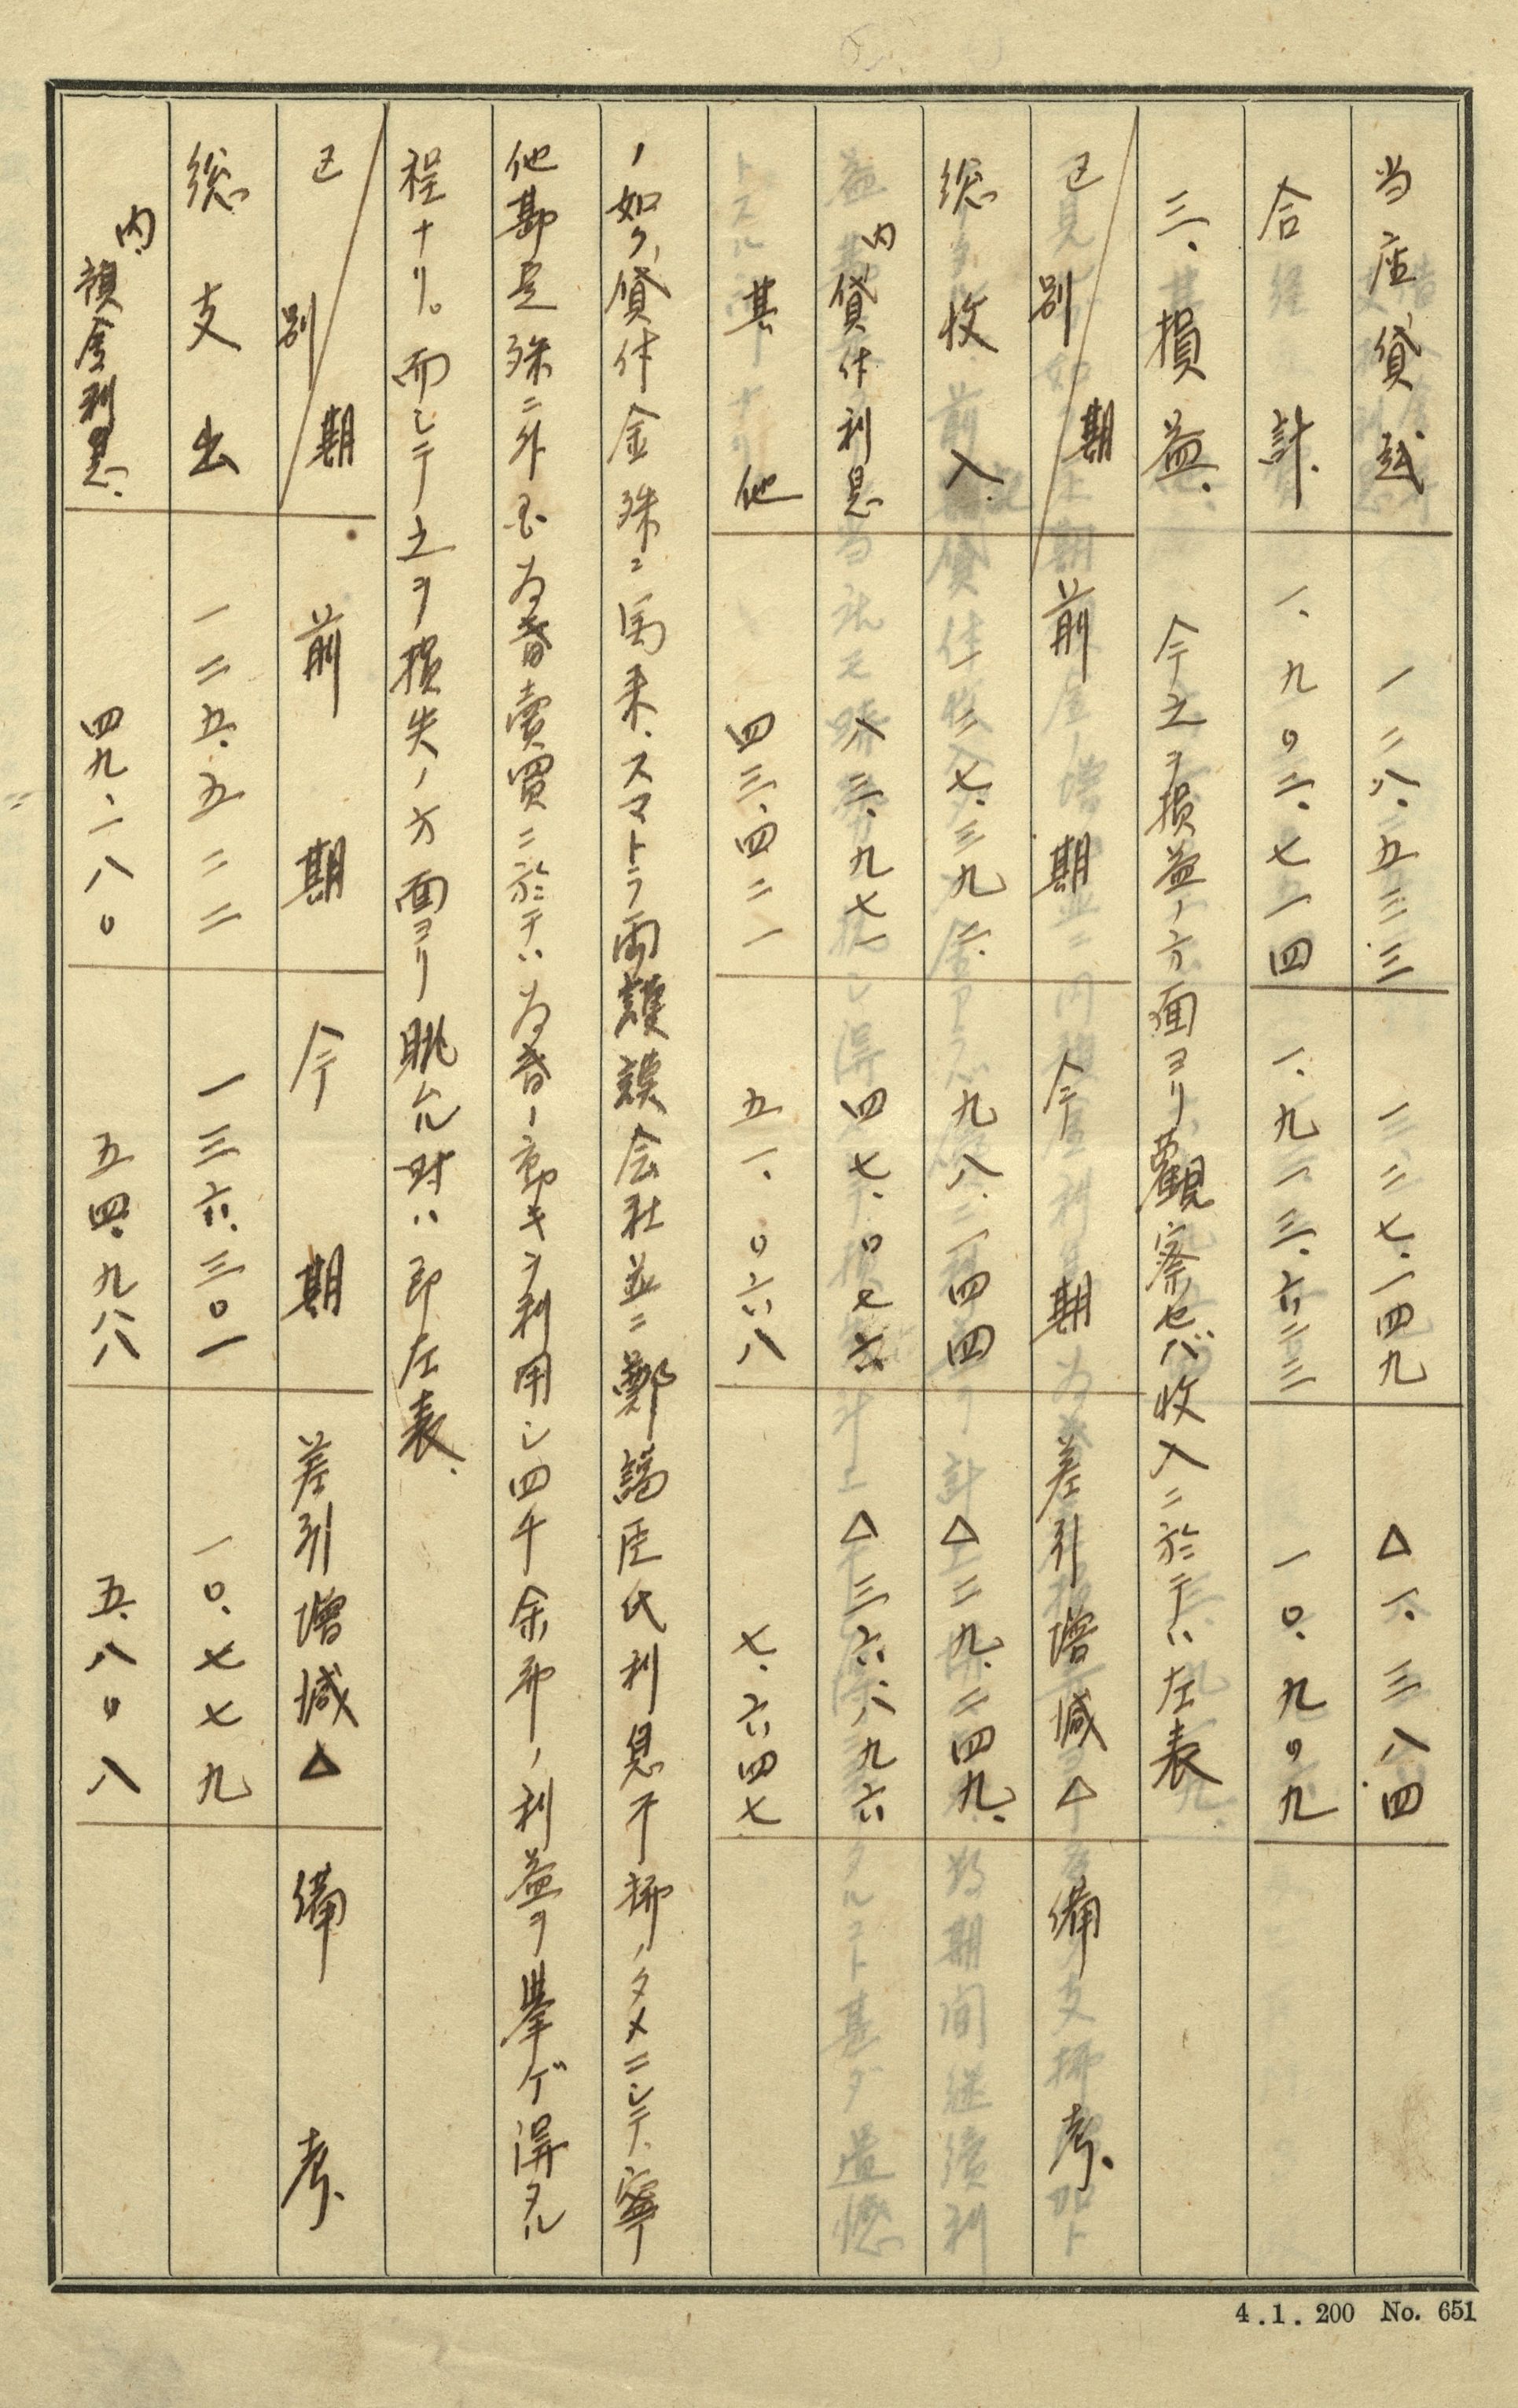 当座貸越 一二八、五三三 一二七、一四九 △一、三八四
合計、 一、九〇二、七一四 一、九一三、六二三 一〇、九〇九
三、損益、 今之ヲ損益ノ方面ヨリ觀察セバ收入ニ於テハ左表
区別 期 前期 今期 差引増減△ 備考、
総收入、 一二七、三九二、 九八、一四四 △二九、二四九、
内貸付利息 八三、九七一 四七、〇七六 △三六、八九六
其他 四三、四二一 五一、〇六八 七、六四七
ノ如ク、貸付金殊ニ馬来、スマトラ両護謨会社並ニ鄭謁臣氏利息不拂ノタメニシテ、寧
他勘定殊ニ外国為替賣買ニ於テハ為替ノ動キヲ利用シ四千余弗ノ利益ヲ擧ゲ得タル
程ナリ。而シテ之ヲ損失ノ方面ヨリ眺ムル時ハ即左表、
区別 期 前期 今期 差引増減△ 備考、
総支出 一二五、五二二 一三六、三〇一 一〇、七七九
内、預金利息、 四九、一八〇 五四、九八八 五、八〇八
4.1.200 No. 651